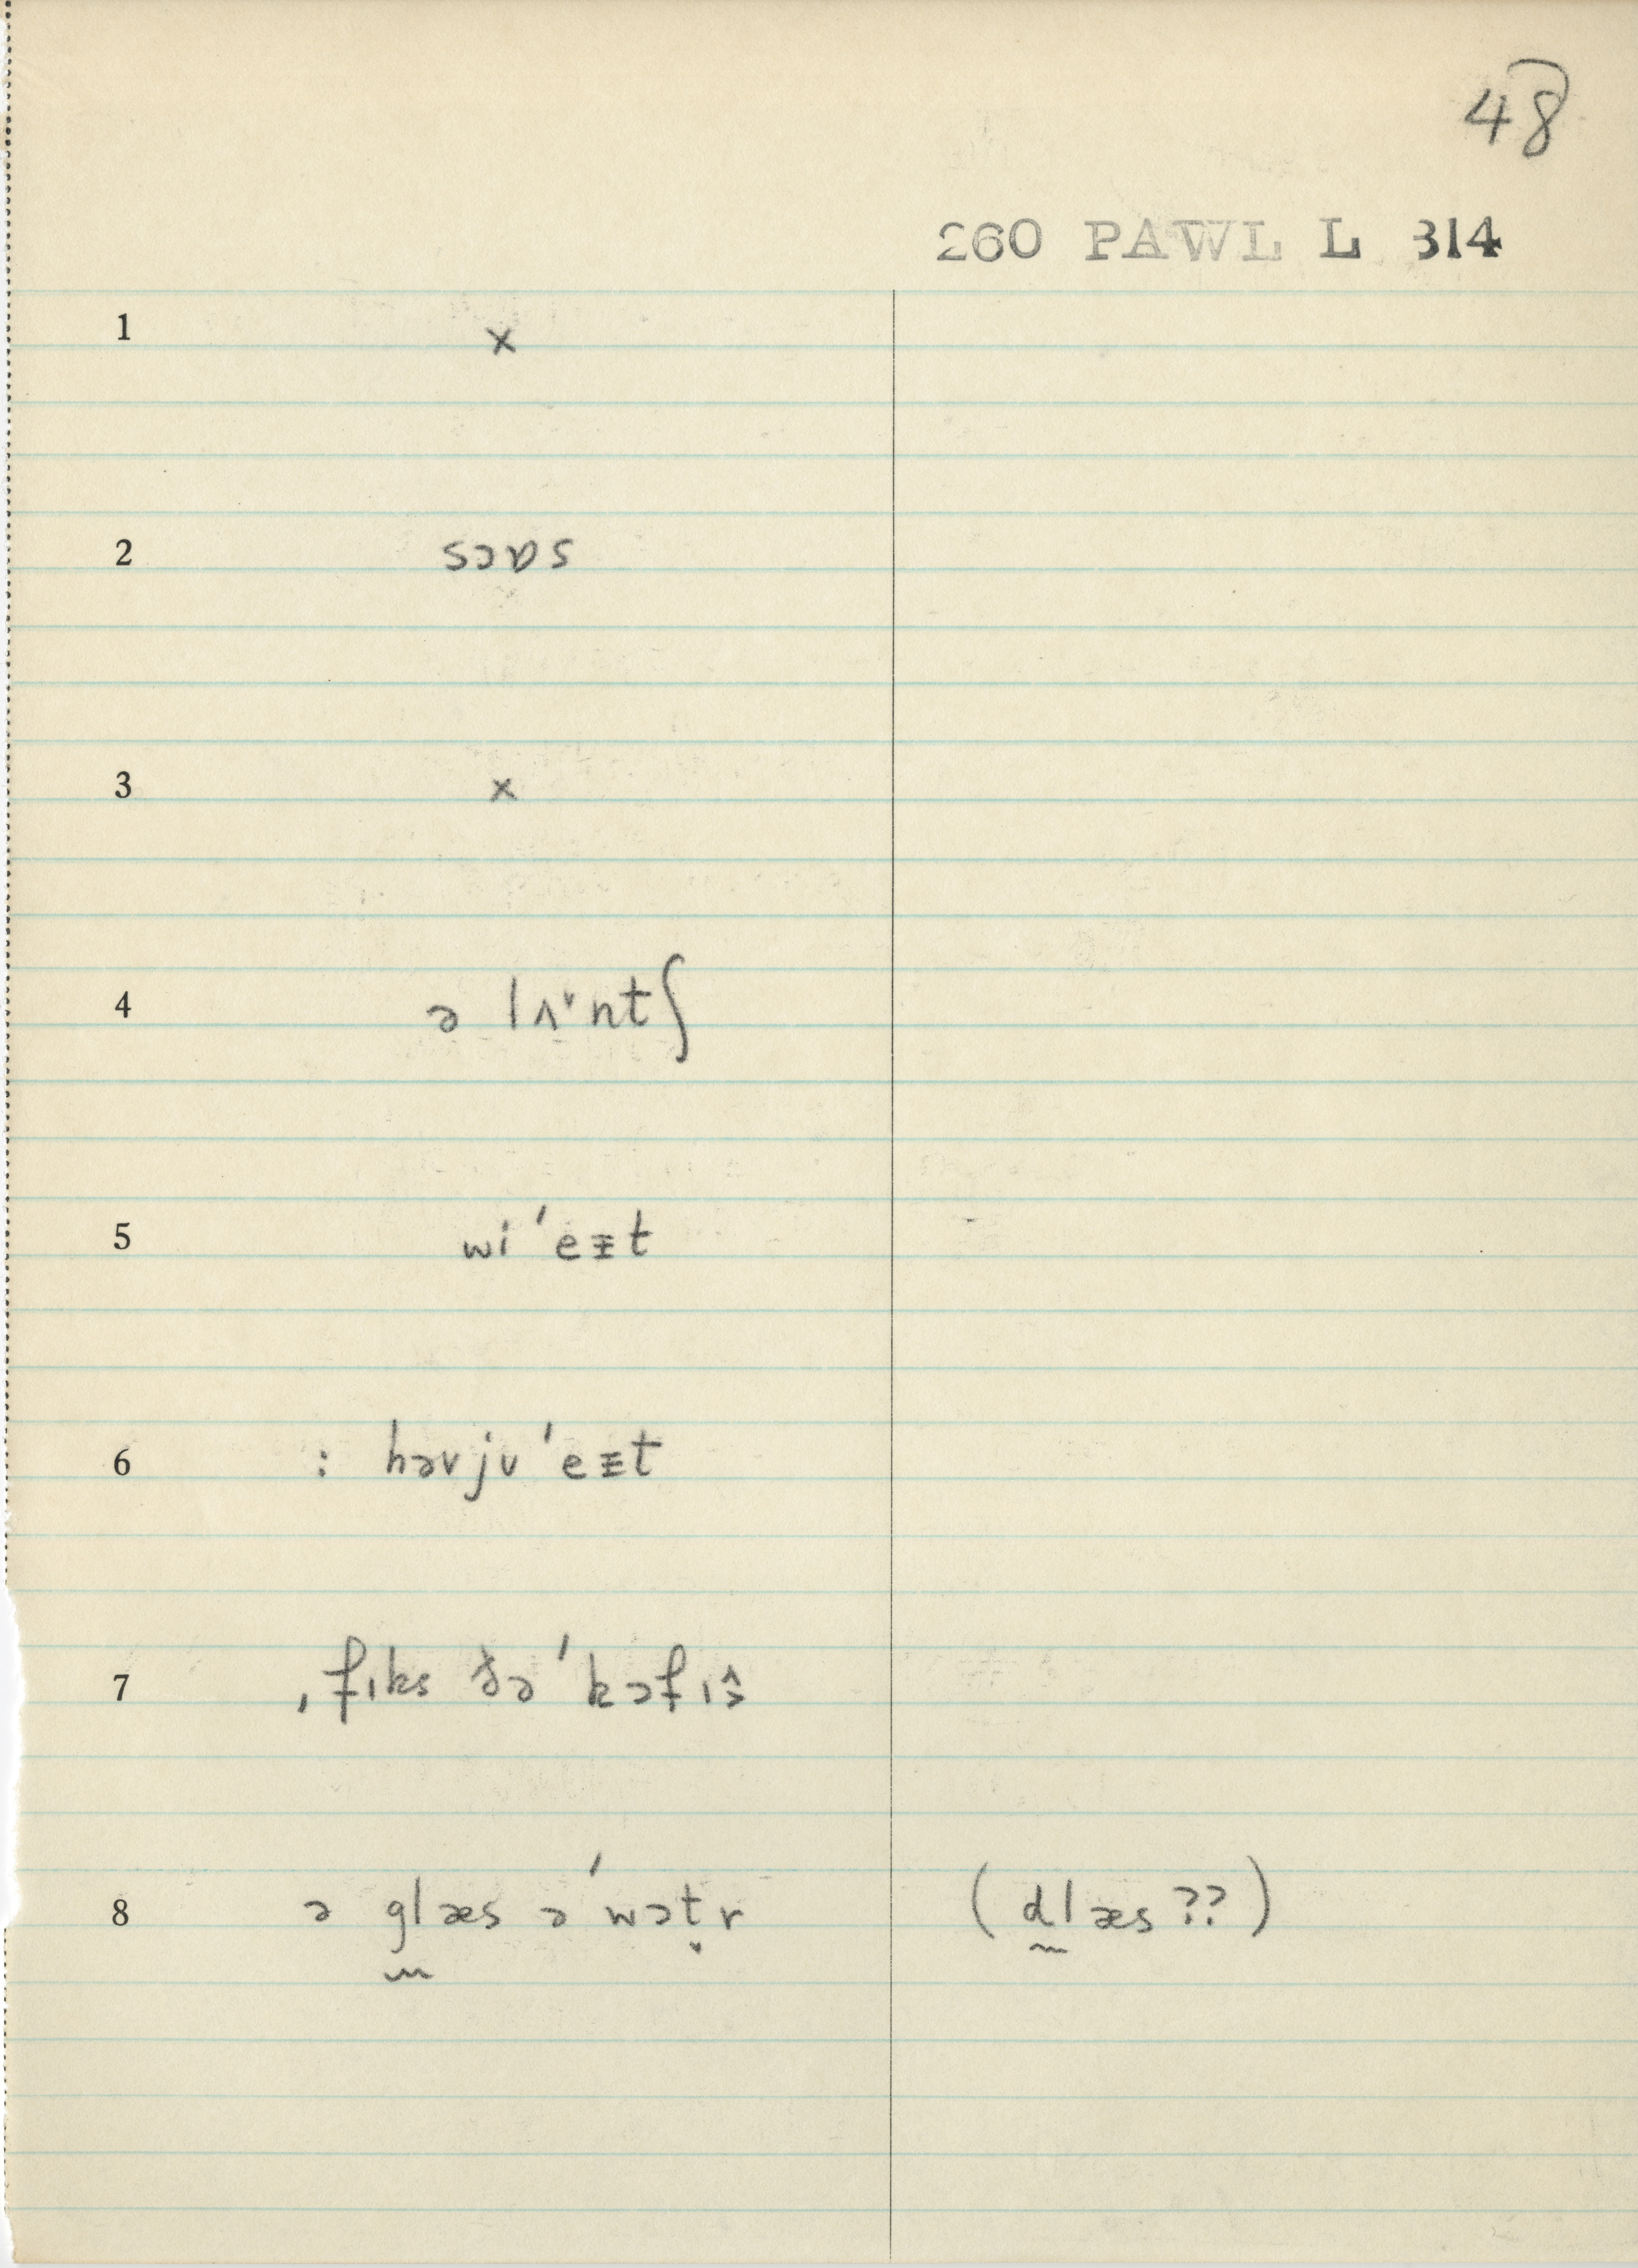 48
260 PAWL L 314
1 x
2 sɔɒs
3 x
4 ə lʌ˅ntʃ
5 wi ˈeɪt
6 : həvjʊ ˈeɪt
7 ˌfɪks ðə ˈkɔfɪ
8 ə glæs ə ˈwɔt̬r (dlæs ??)